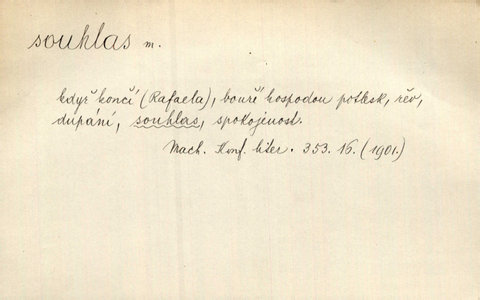 souhlas m.
když končí (Rafaela), bouří hospodou potlesk, řev,
dupání, souhlas, spokojenost.
Mach. Konf. liter. 353. 16. (1901.)